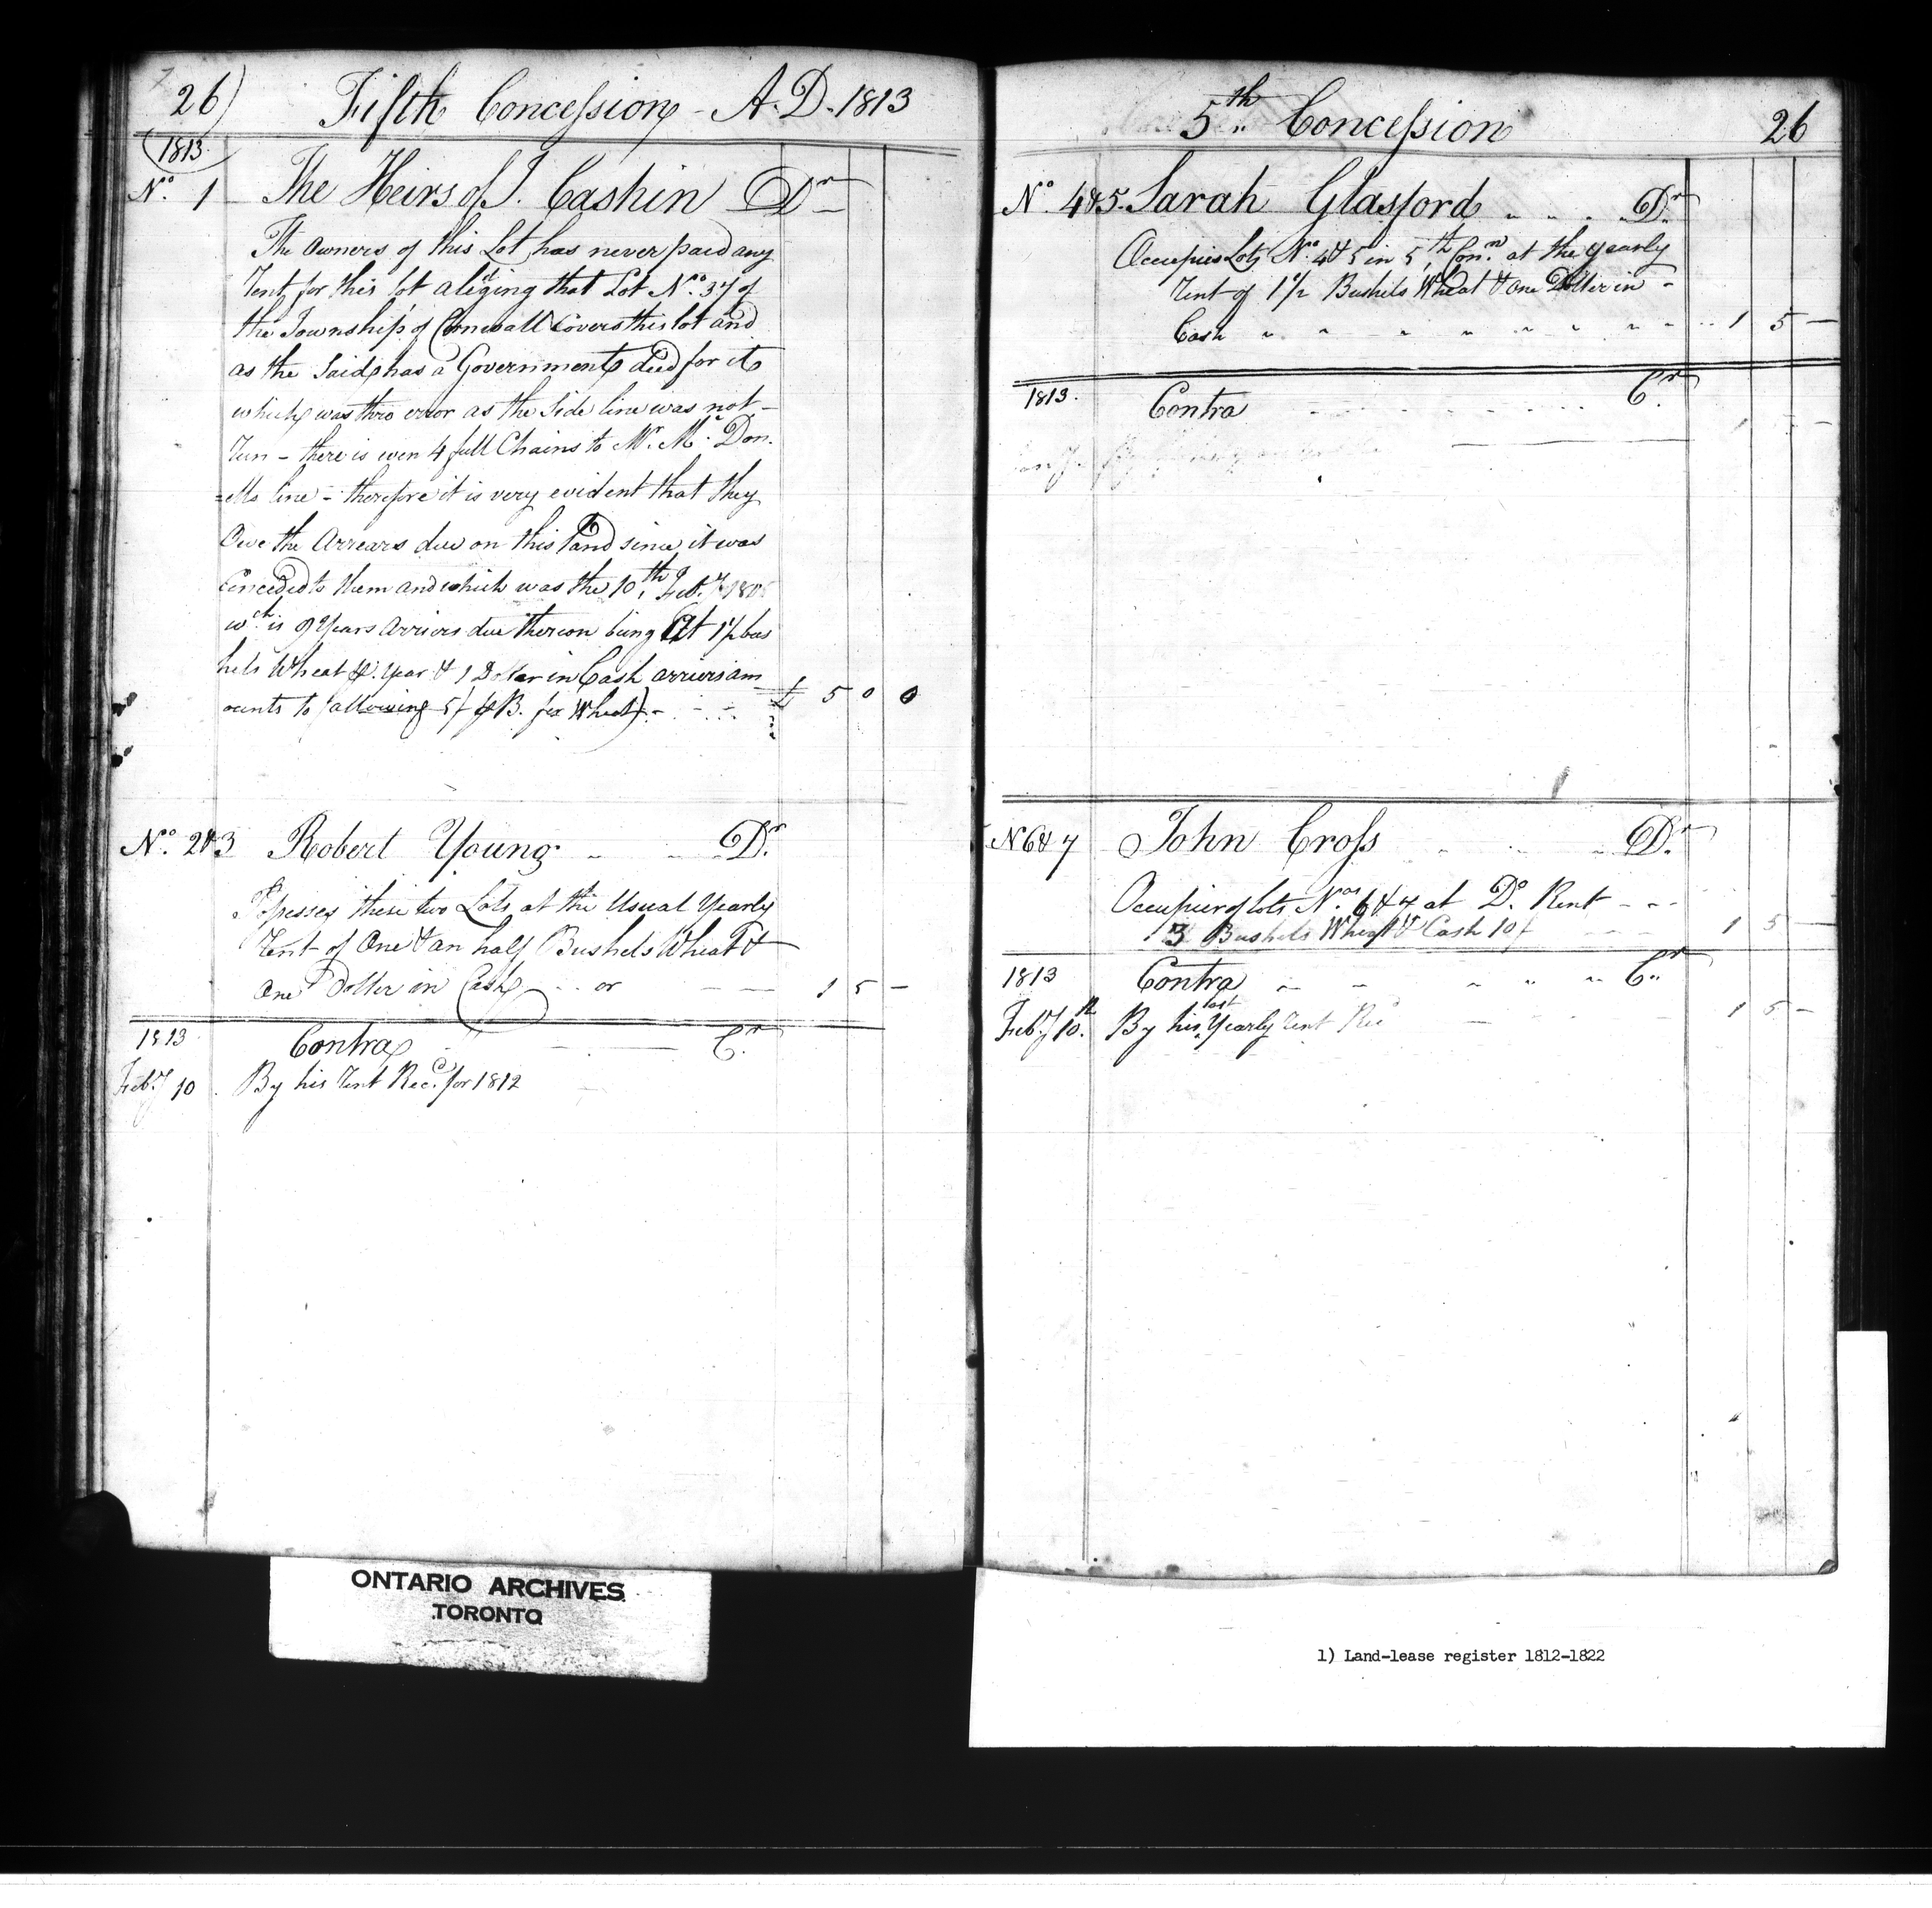 26) Fifth Concession - A.D. 1813
1813
No. 1 The Heirs of J. Cashin Dr
The owners of this Lot has never paid any
Rent for this lot alidging that Lot No. 37 of
the Township of Cornwall Covers this lot and
as the Said has a Government deed for it
which was thro error as the Side line was not -
Run - there is even 4 full Chains to Mr. Mc Don.
=ells line - therefore it is very evident that they
Owe the Arrears due on this Land since it was
Conceded to them and which was the 10th Feby
wch. is 9 Years Arriers due thereon being At 1 1/2 bus
hels Wheat Year & 1 Doller in Cash arriers am
ounts to (allowing 5/ B. for Wheat) - £ 5 0 0
No. 2&3 Robert Young Dr.
Posseses these two Lots at the Usual Yearly
Rent of One & an half Bushels Wheat &
One Doller in Cash or 1 5 -
1813 Contra Cr.
Feby 10 By his Rent Recd. for 1812
5th Concession 26
No. 4&5. Sarah Glasford Dr.
Occupies Lots No. 4 & 5 in 5th Con. at the yearly
Rent of 1 1/2 Bushels Wheat & One Doller in -
Cash 1 5 -
1813. Contra Cr.
N 6 & 7 John Cross Dr.
Occupier of lots Nos. 6 & 7 at Do. Rent - - -
3 Bushels Wheat & Cash 10/ 1 5
1813 Contra Cr.
Feby 10th. By his last Yearly Rent Recd 1 5 -
ONTARIO ARCHIVES
TORONTO
1) Land-lease register 1812-1822